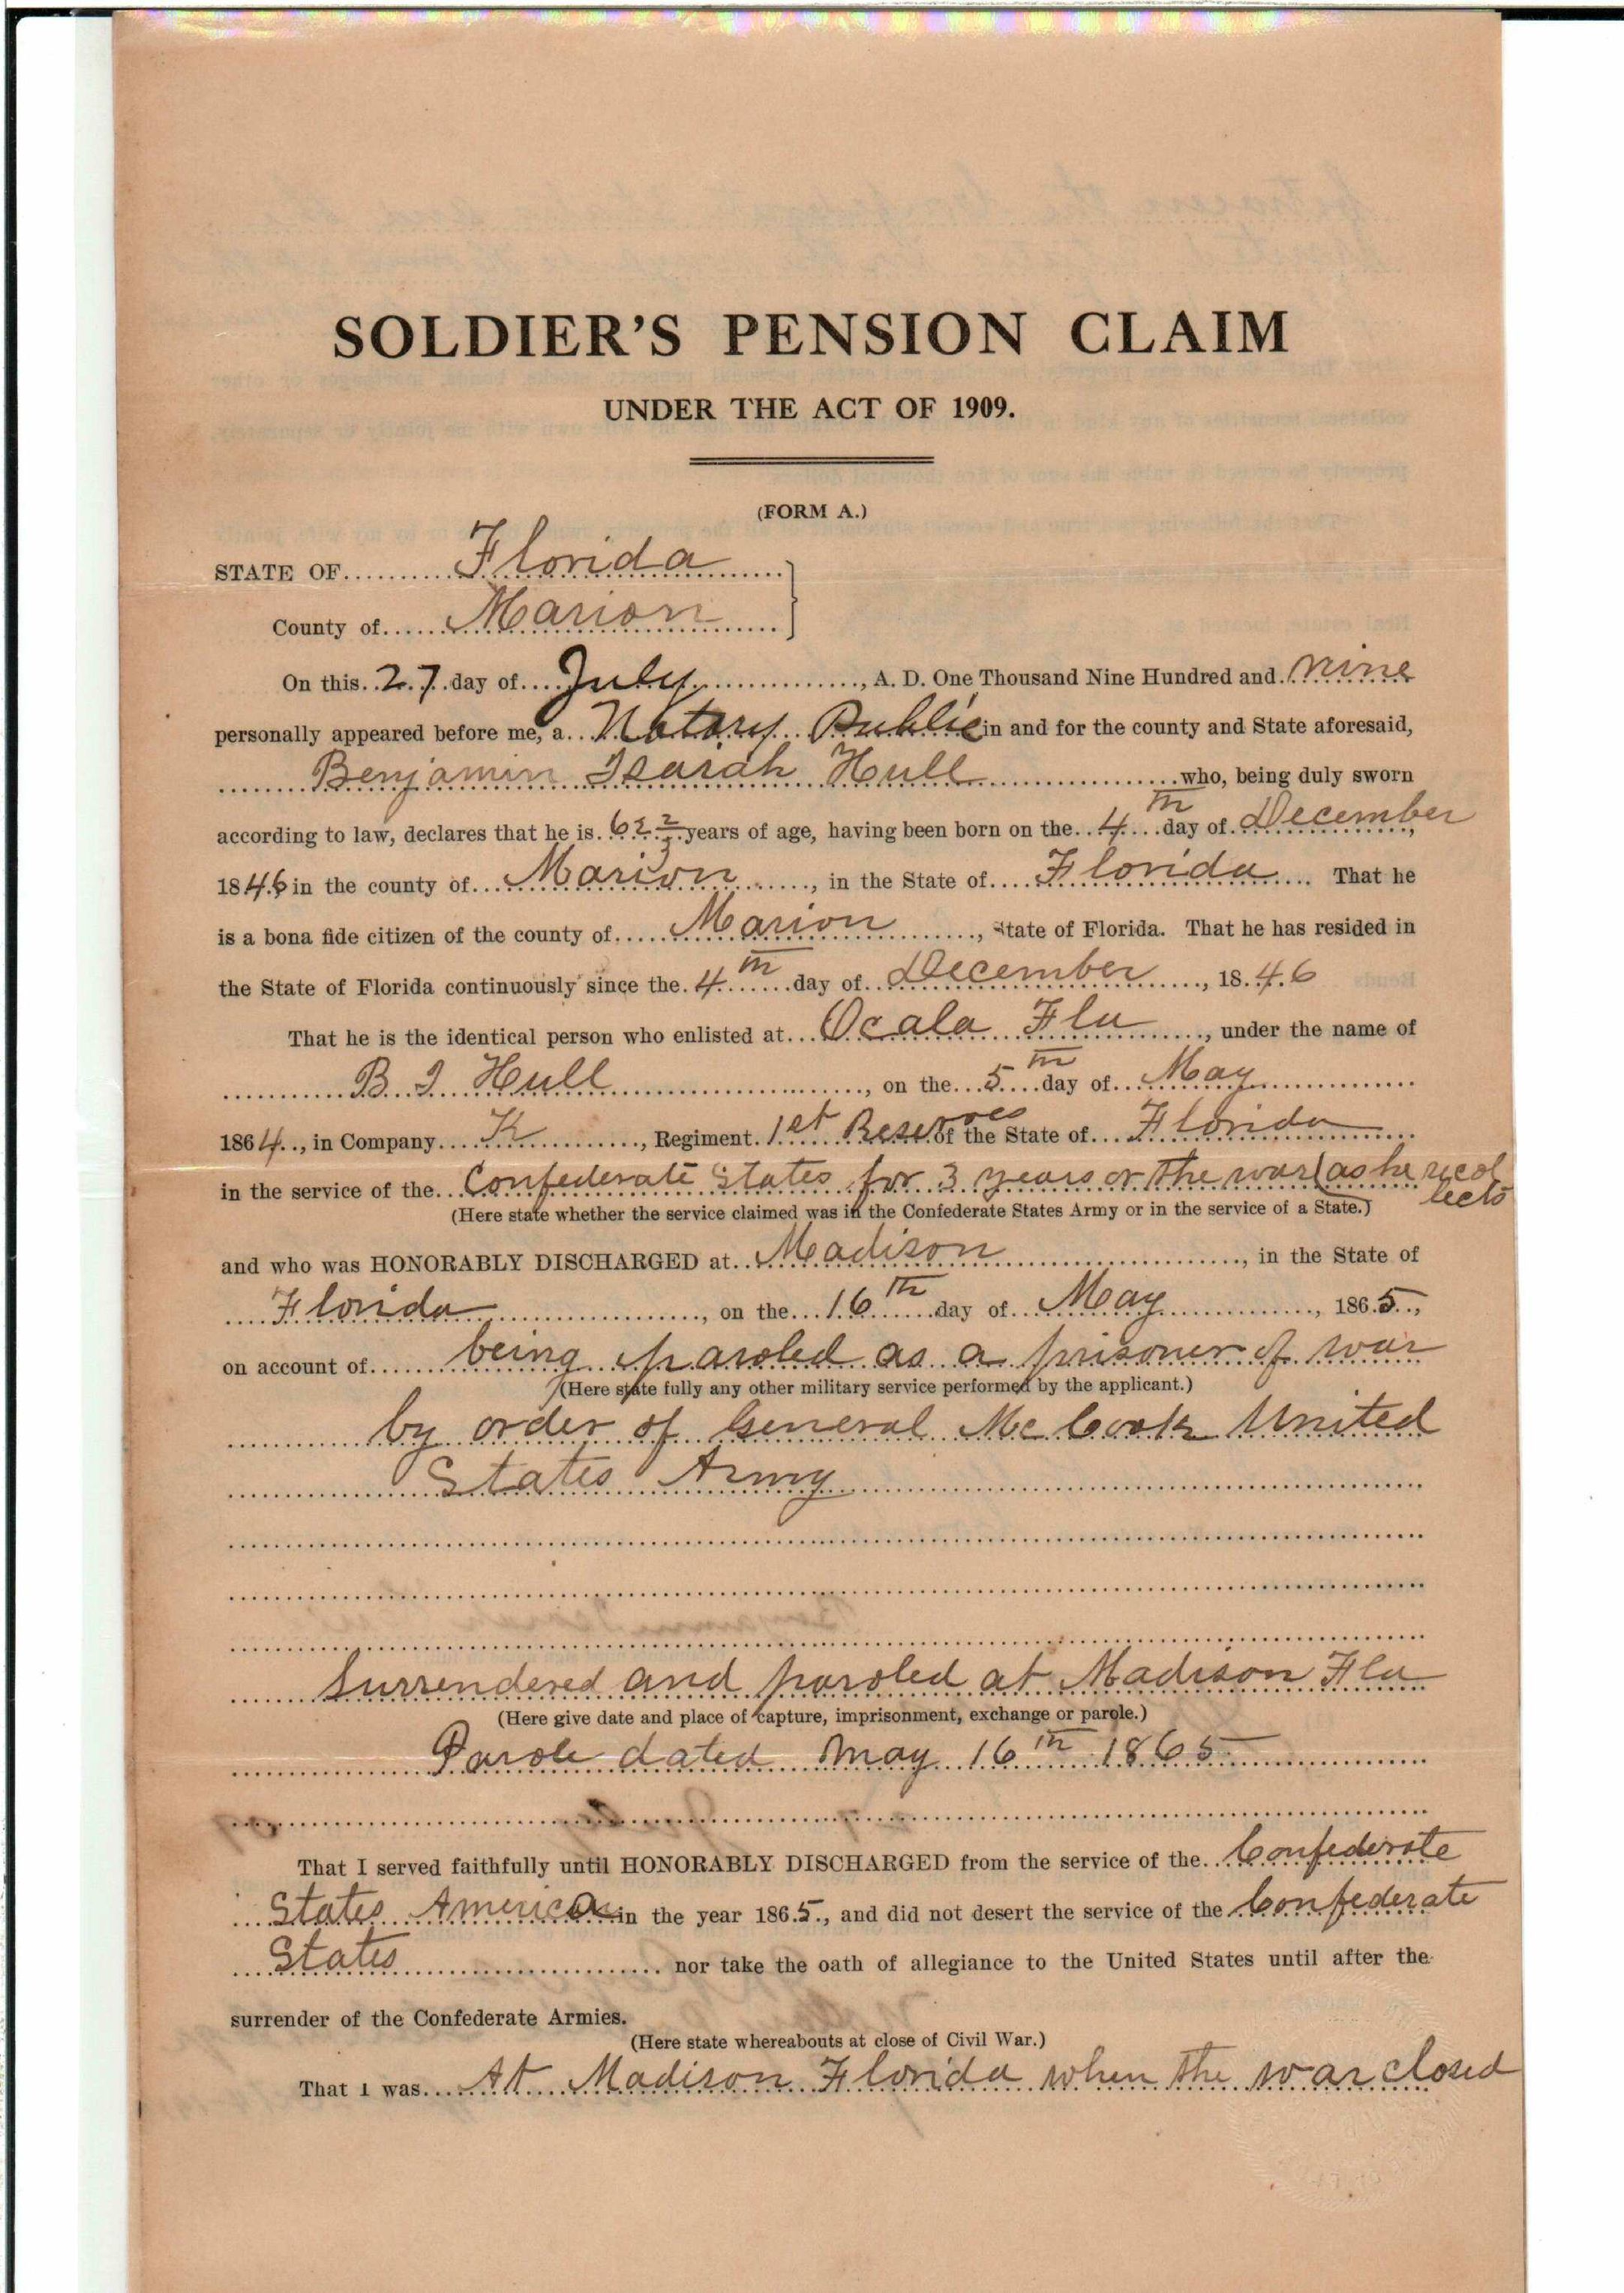 SOLDIER'S PENSION CLAIM
UNDER THE ACT OF 1909.
(FORM A.)
STATE OF Florida
County of Marion
On this 27 day of July, A. D. One Thousand Nine Hundred and nine
personally appeared before me, a Notary Public in and for the county and State aforesaid,
Benjamin Isaiah Hull who, being duly sworn
according to law, declares that he is 62 2/3 years of age, having been born on the 4th day of December,
1846 in the county of Marion, in the State of Florida That he
is a bona fide citizen of the county of Marion, State of Florida. That he has resided in
the State of Florida continuously since the 4th day of December, 1846
That he is the identical person who enlisted at Ocala Fla, under the name of
B. I. Hull, on the 5th day of May
1864, in Company K, Regiment 1st Reserves of the State of Florida
in the service of the Confederate States for 3 years or the war (as he recol
lects
(Here state whether the service claimed was in the Confederate States Army or in the service of a State.)
and who was HONORABLY DISCHARGED at Madison, in the State of
Florida, on the 16th day of May, 1865,
on account of being paroled as a prisoner of war
(Here state fully any other military service performed by the applicant.)
by order of General McCook United
States Army
Surrendered and paroled at Madison Fla
(Here give date and place of capture, imprisonment, exchange or parole.)
Parole dated May 16th 1865
That I served faithfully until HONORABLY DISCHARGED from the service of the Confederate
States America in the year 1865, and did not desert the service of the Confederate
States nor take the oath of allegiance to the United States until after the
surrender of the Confederate Armies.
(Here state whereabouts at close of Civil War.)
That I was At Madison Florida when the war closed